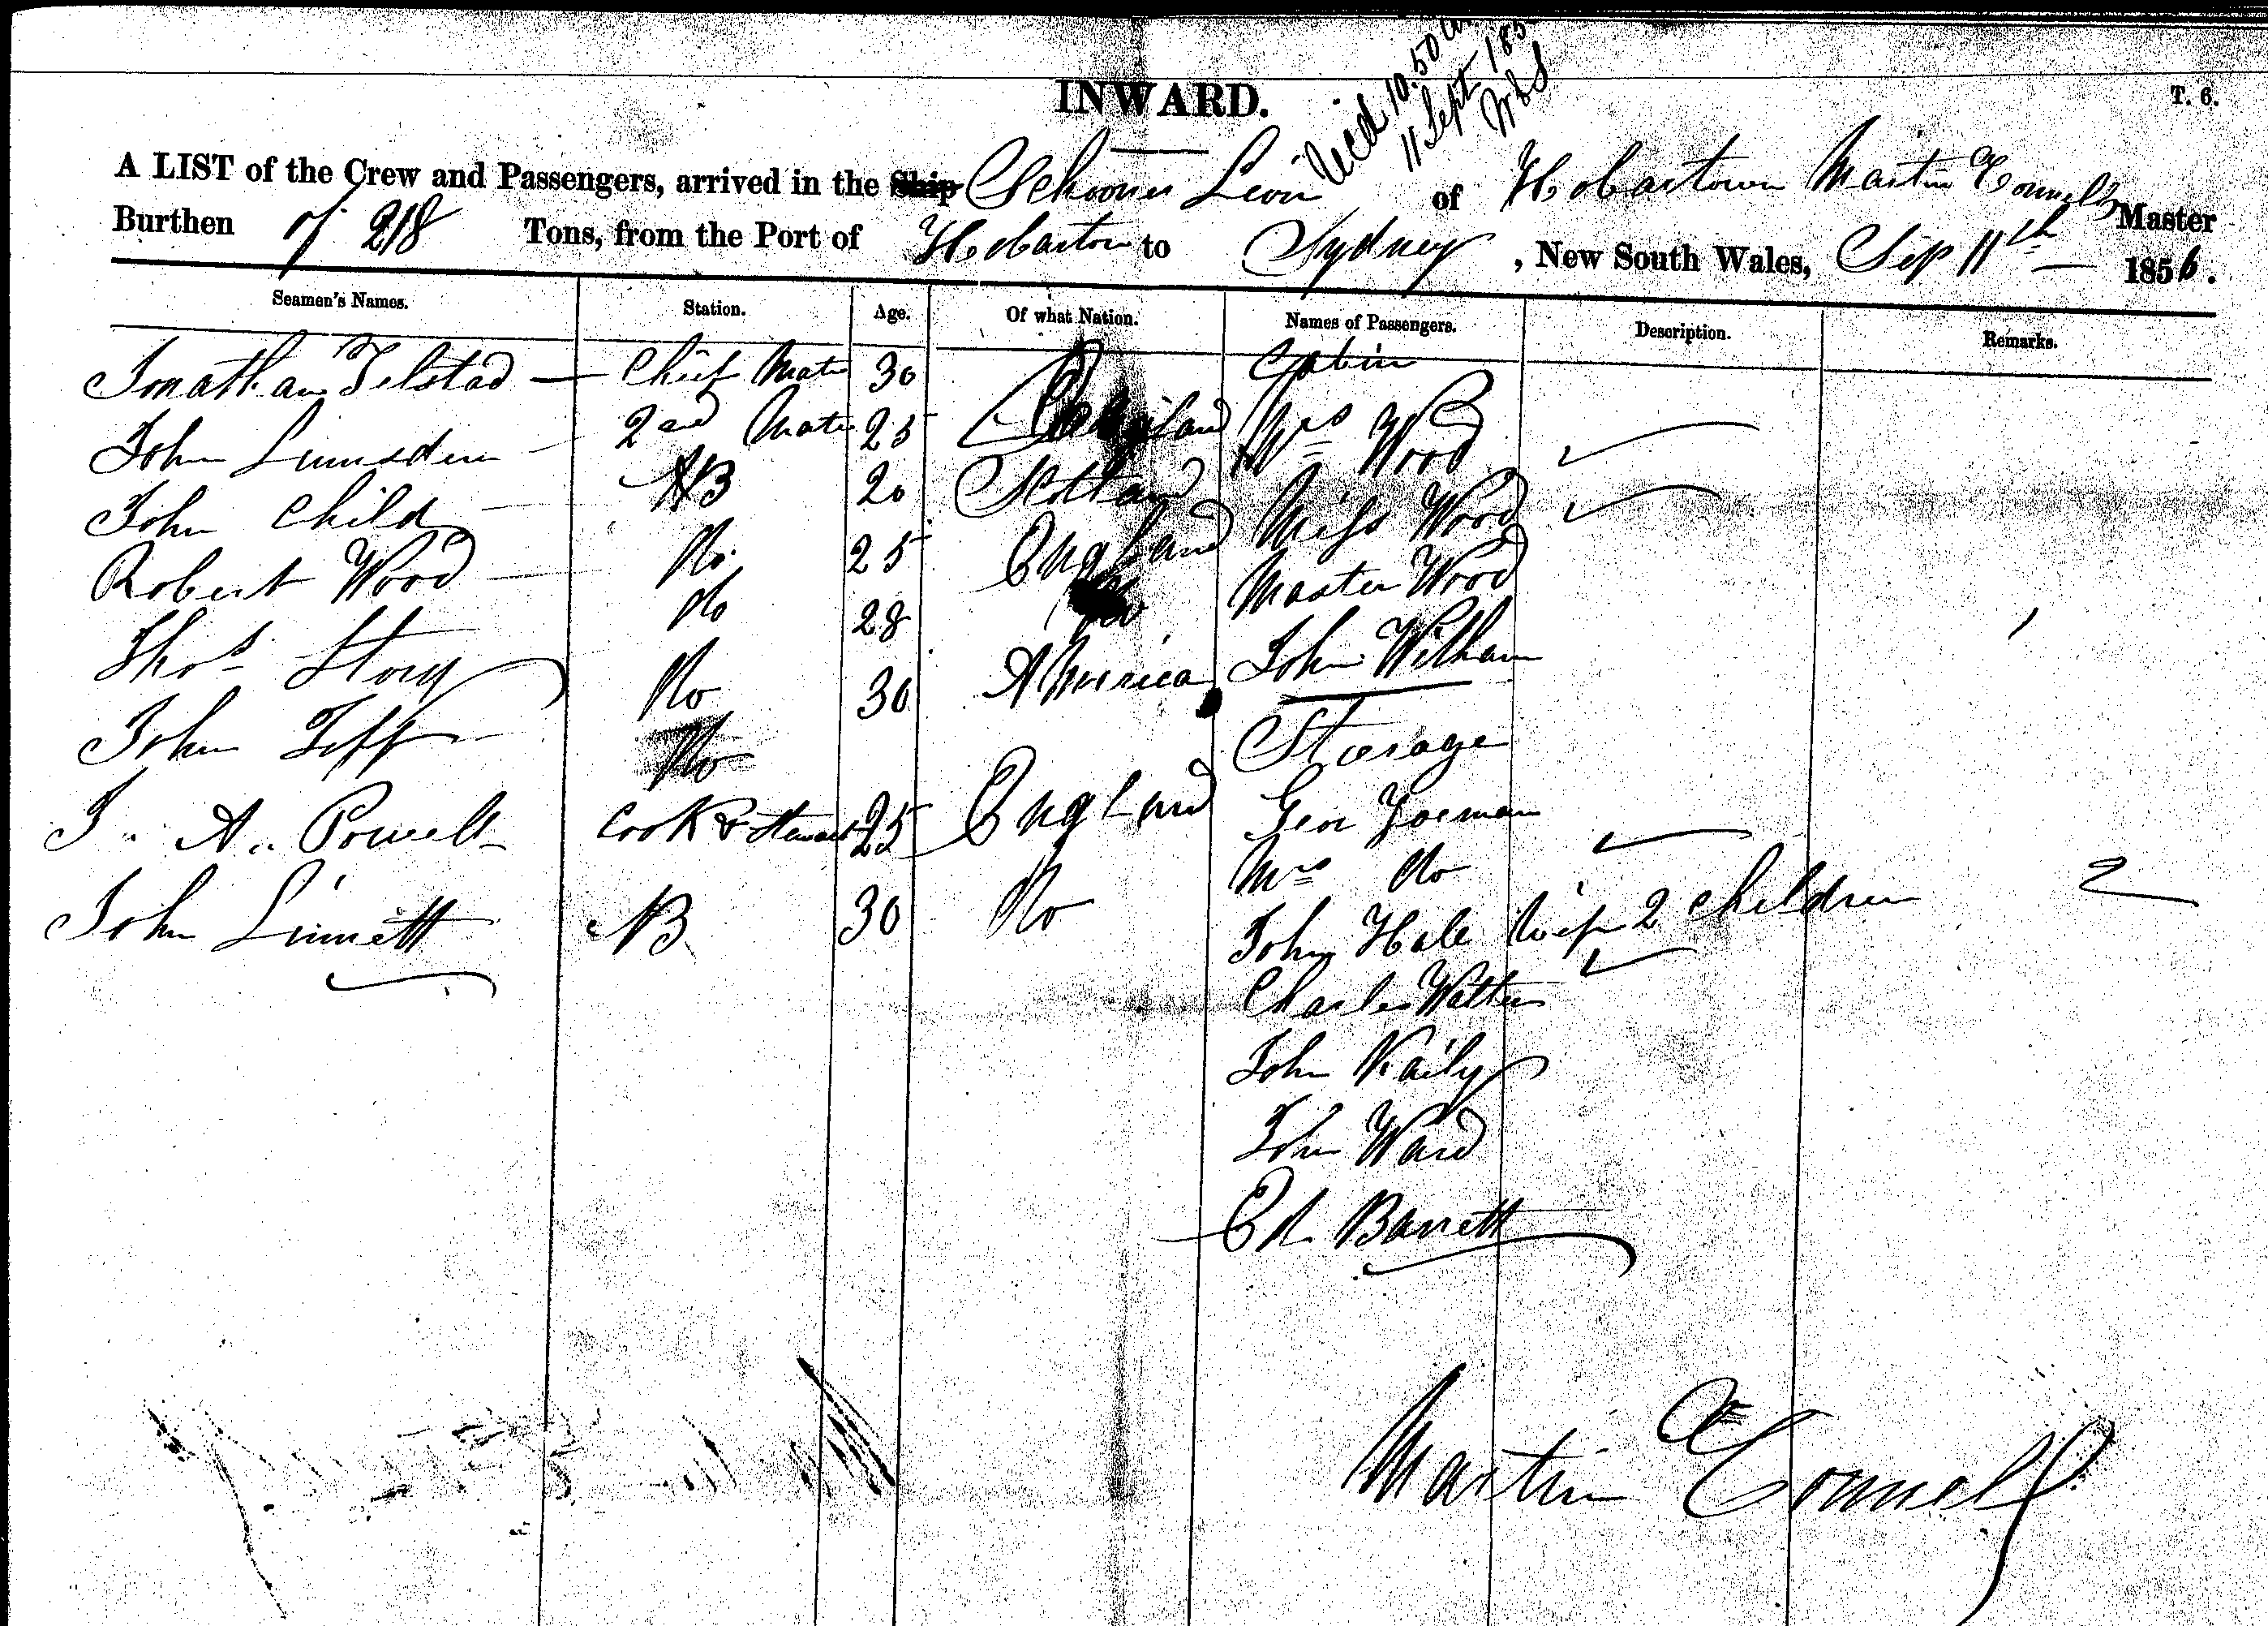 INWARD.
T. 6.
Recd 10.50 am
11 Sept 185
A LIST of the Crew and Passengers, arrived in the Ship Schooner Leon of Hobartown Martin Connell Master
Burthen of 218 Tons, from the Port of Hobarton to Sydney, New South Wales, Sep 11th 1856.
Seamen's Names. Station. Age. Of what Nation. Names of Passengers. Description. Remarks.
Cabin
Jonathan Felstad Chief Mate 30 England Mrs Wood
John Lumsden 2nd Mate 25 Scotland Miss Wood
John Child AB 20 England Master Wood
Robert Wood Do 25 Do John Witham
Thos Story Do 28 America
Storage
John Teff Do 30
Do
J. A. Powell Cook & Steward 25 England Geor Yoeman
Mrs Do
John Linnett AB 30 Do John Hale Wife 2 Children 2
Charles Watters
John Kaily
John Ward
Ed Barrett
Martin Connell